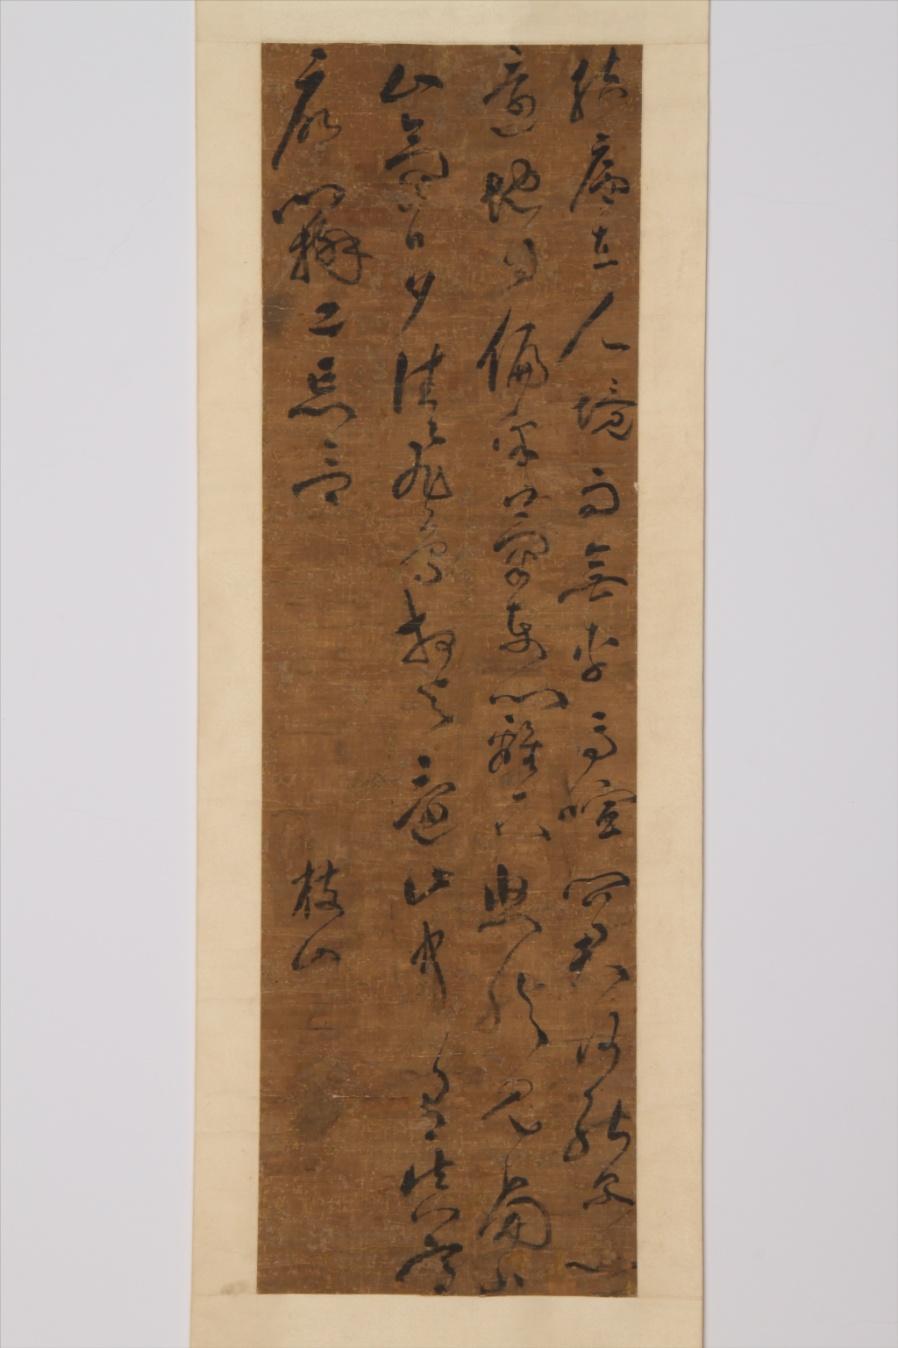 結廬在人境而無車馬喧問君何能爾心
遠地自偏采菊東籬下悠然見南山
山氣日夕佳飛鳥相與還此中有真意
欲辨已忘言
枝山